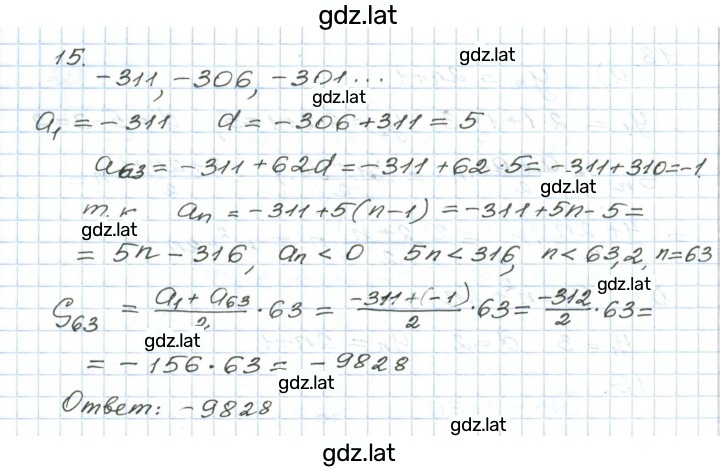 gdz.lat
15.
gdz.lat
-311, -306, -301...
gdz.lat
a₁ = -311 d = -306 + 311 = 5
a₆₃ = -311 + 62d = -311 + 62 · 5 = -311 + 310 = -1
gdz.lat
т.к aₙ = -311 + 5(n-1) = -311 + 5n - 5 =
gdz.lat
= 5n - 316, aₙ < 0 5n < 316, n < 63,2, n = 63
gdz.lat
S₆₃ = (a₁ + a₆₃)/2 · 63 = (-311 + (-1))/2 · 63 = -312/2 · 63 =
gdz.lat
= -156 · 63 = -9828
gdz.lat
Ответ: -9828
gdz.lat
gdz.lat